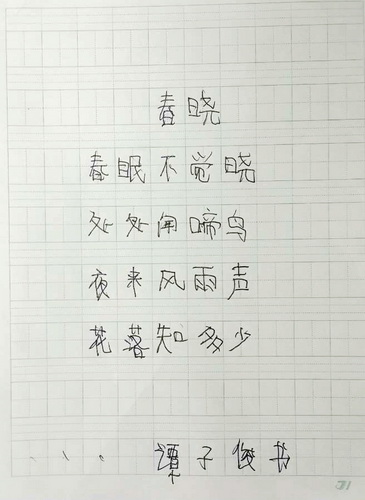 春晓
春眠不觉晓
处处闻啼鸟
夜来风雨声
花落知多少
谭子俊书
31